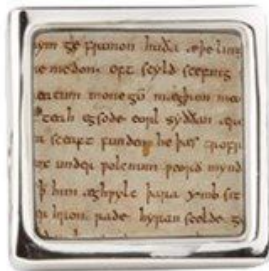 ym ge frunon huða æþeling
emedon. oft scyld scefing
eatum monegū mægþum meo
teah egsode eorl syððan ære
sceaft funden he þæs frofr
ox under ƿolcnum ƿeorð mynd
ꝥ him æghƿylc þara ymb sit
er hron rade hyran scolde g